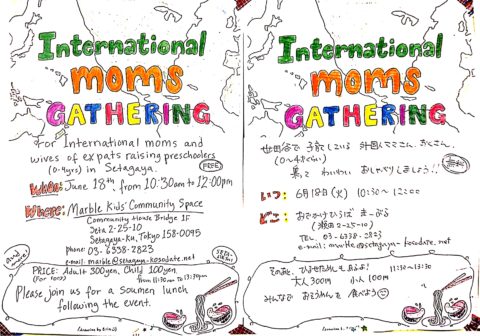 International
moms
GATHERING
For International moms and
wives of expats raising preschoolers
(0-4yrs) in Setagaya.
FREE
When: June 18th from 10:30am to 12:00pm
Where: Marble Kids' Community Space
Community House Bridge 1F
Seta 2-25-10
Setagaya-ku, Tokyo 158-0095
phone: 03-6338-2823
e-mail: marble@setagaya-kosodate.net
PRICE: Adult 300yen, Child 100yen
(for food)
from 11:30am to 13:30pm
Please join us for a soumen lunch
following the event.
International
moms
GATHERING
世田谷で子育てしている 外国人ママさん、おくさん、
(0〜4才ぐらい)
集って わいわい おしゃべりしましょう!!
無料
いつ: 6月18日(火) 10:30〜12:00
どこ: おでかけひろば まーぶる
(瀬田2-25-10)
TEL. 03-6338-2823
e-mail: marble@setagaya-kosodate.net
11:30〜13:30
大人300円 小人100円
みんなで おそうめんを 食べよう